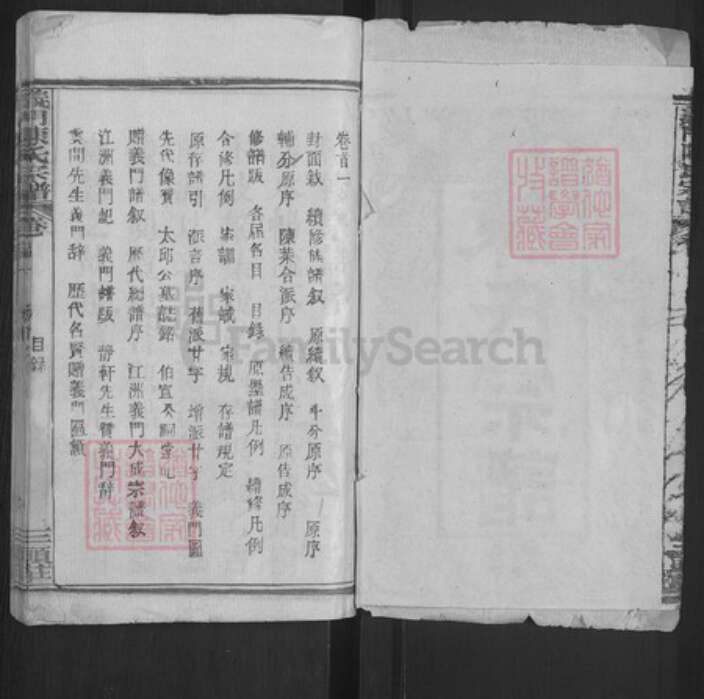 卷首一
封面敘 續修族譜叙 原續叙 斗分原序 原序
輔分原序 陳葉合派序 續告成序 原告成序
修譜跋 各屆名目 目錄 原墨譜凡例 續修凡例
合修凡例 宗訓 家誡 宗規 存譜規定
原存譜引 派言序 舊派廿字 增派廿字 義門圖
先代像贊 太邱公墓誌銘 伯宜公祠堂記
贈義門譜叙 歷代總譜序 江洲義門大成宗譜叙
江洲義門記 義門譜跋 靜軒先生贊義門辭
雲間先生義門辭 歷代名賢贈義門匾額
義門陳氏宗譜
目錄
FamilySearch